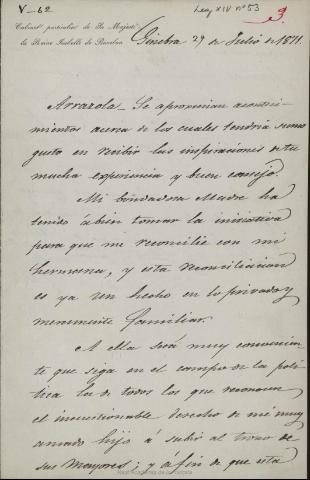 V-62
Leg XIV nº 53
3.
Cabinet particulier de Sa Majesté
la Reine Isabelle de Bourbon
Ginebra 29 de Julio de 1871.
Arrazola_ Se aproximan aconteci-
mientos acerca de los cuales tendría sumo
gusto en recibir las inspiraciones de tu
mucha experiencia y buen consejo.
Mi bondadosa Madre ha
tenido á bien tomar la iniciativa
para que me reconcilie con mi
hermana, y esta reconciliacion
es ya un hecho en lo privado y
meramente familiar.
A ella será muy convenien-
te que siga en el campo de la polí-
tica la de todos los que reconocen
el incuestionable derecho de mi muy
amado hijo á subir al trono de
sus Mayores; y á fin de que esta
Real Academia de la Historia